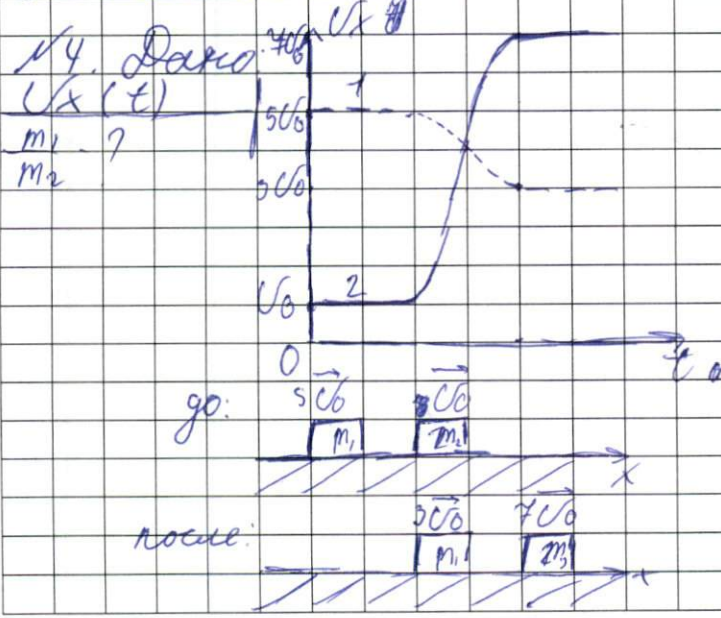 №4. Дано
Ux (t)
m1 - ?
m2
Ux
7U0
5U0
1
3U0
U0
2
0
t
до:
5U0
U0
m1
m2
x
после:
3U0
7U0
m1
x